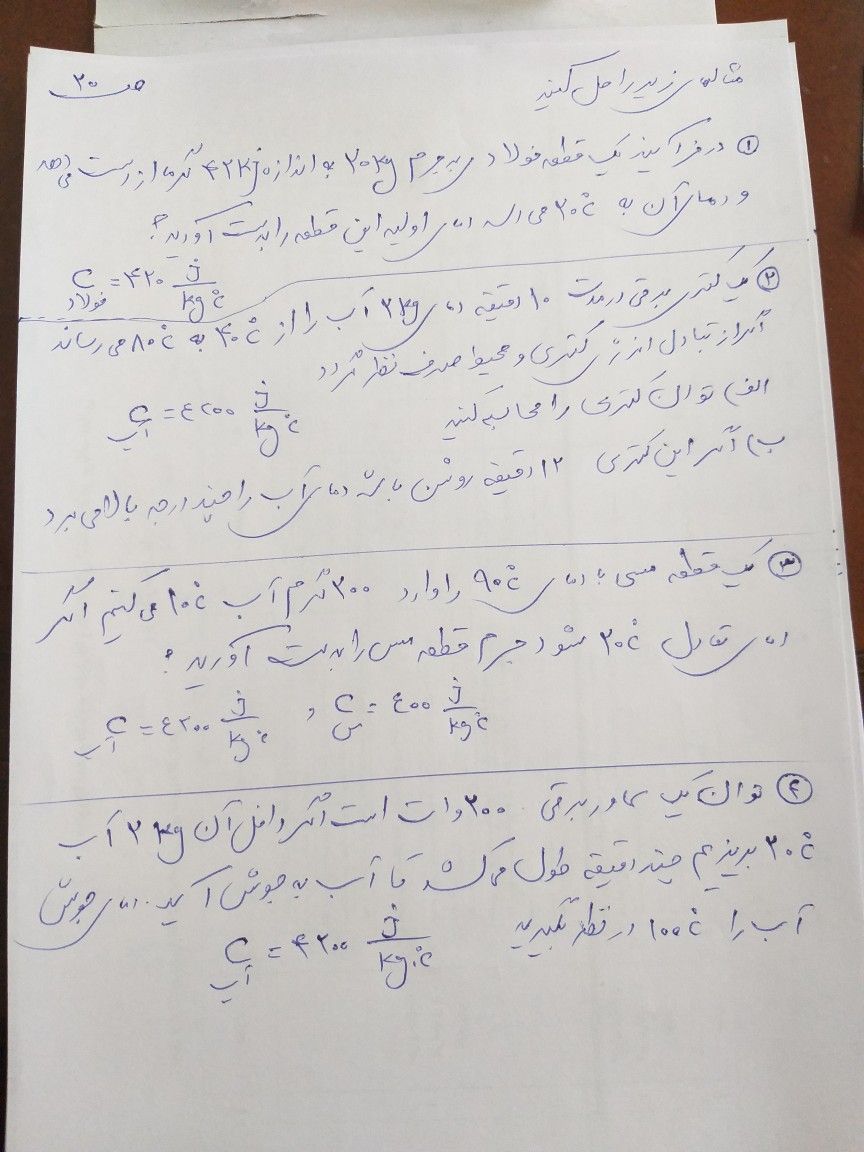 مثالهای زیر را حل کنید
ص ۲۰
① در فرآیند یک قطعه فولادی به جرم ۲۰kg به اندازه ۴۲kj گرما از دست می دهد
و دمای آن به ۳۰°c می رسد دمای اولیه این قطعه را بدست آورید؟
C فولاد = ۴۲۰ j/kg°c
② یک کتری برقی در مدت ۱۰ دقیقه دمای ۳kg آب را از ۴۰°c به ۸۰°c می رساند
اگر از تبادل انرژی کتری و محیط صرف نظر گردد
الف) توان کتری را محاسبه کنید
C آب = ٤۲۰۰ j/kg°c
ب) اگر این کتری ۱۲ دقیقه روشن باشد دمای آب را چند درجه بالا می برد
③ یک قطعه مسی با دمای ۹۰°c را وارد ۳۰۰ گرم آب ۱۰°c می کنیم اگر
دمای تعادل ۳۰°c شود جرم قطعه مس را بدست آورید؟
C مس = ٤۰۰ j/kg°c , C آب = ٤۲۰۰ j/kg°c
④ توان یک سماور برقی ۳۰۰ وات است اگر داخل آن ۳kg آب
۳۰°c بریزیم چند دقیقه طول می کشد تا آب به جوش آید. دمای جوش
آب را ۱۰۰°c در نظر بگیرید
C آب = ۴۲۰۰ j/kg.°c